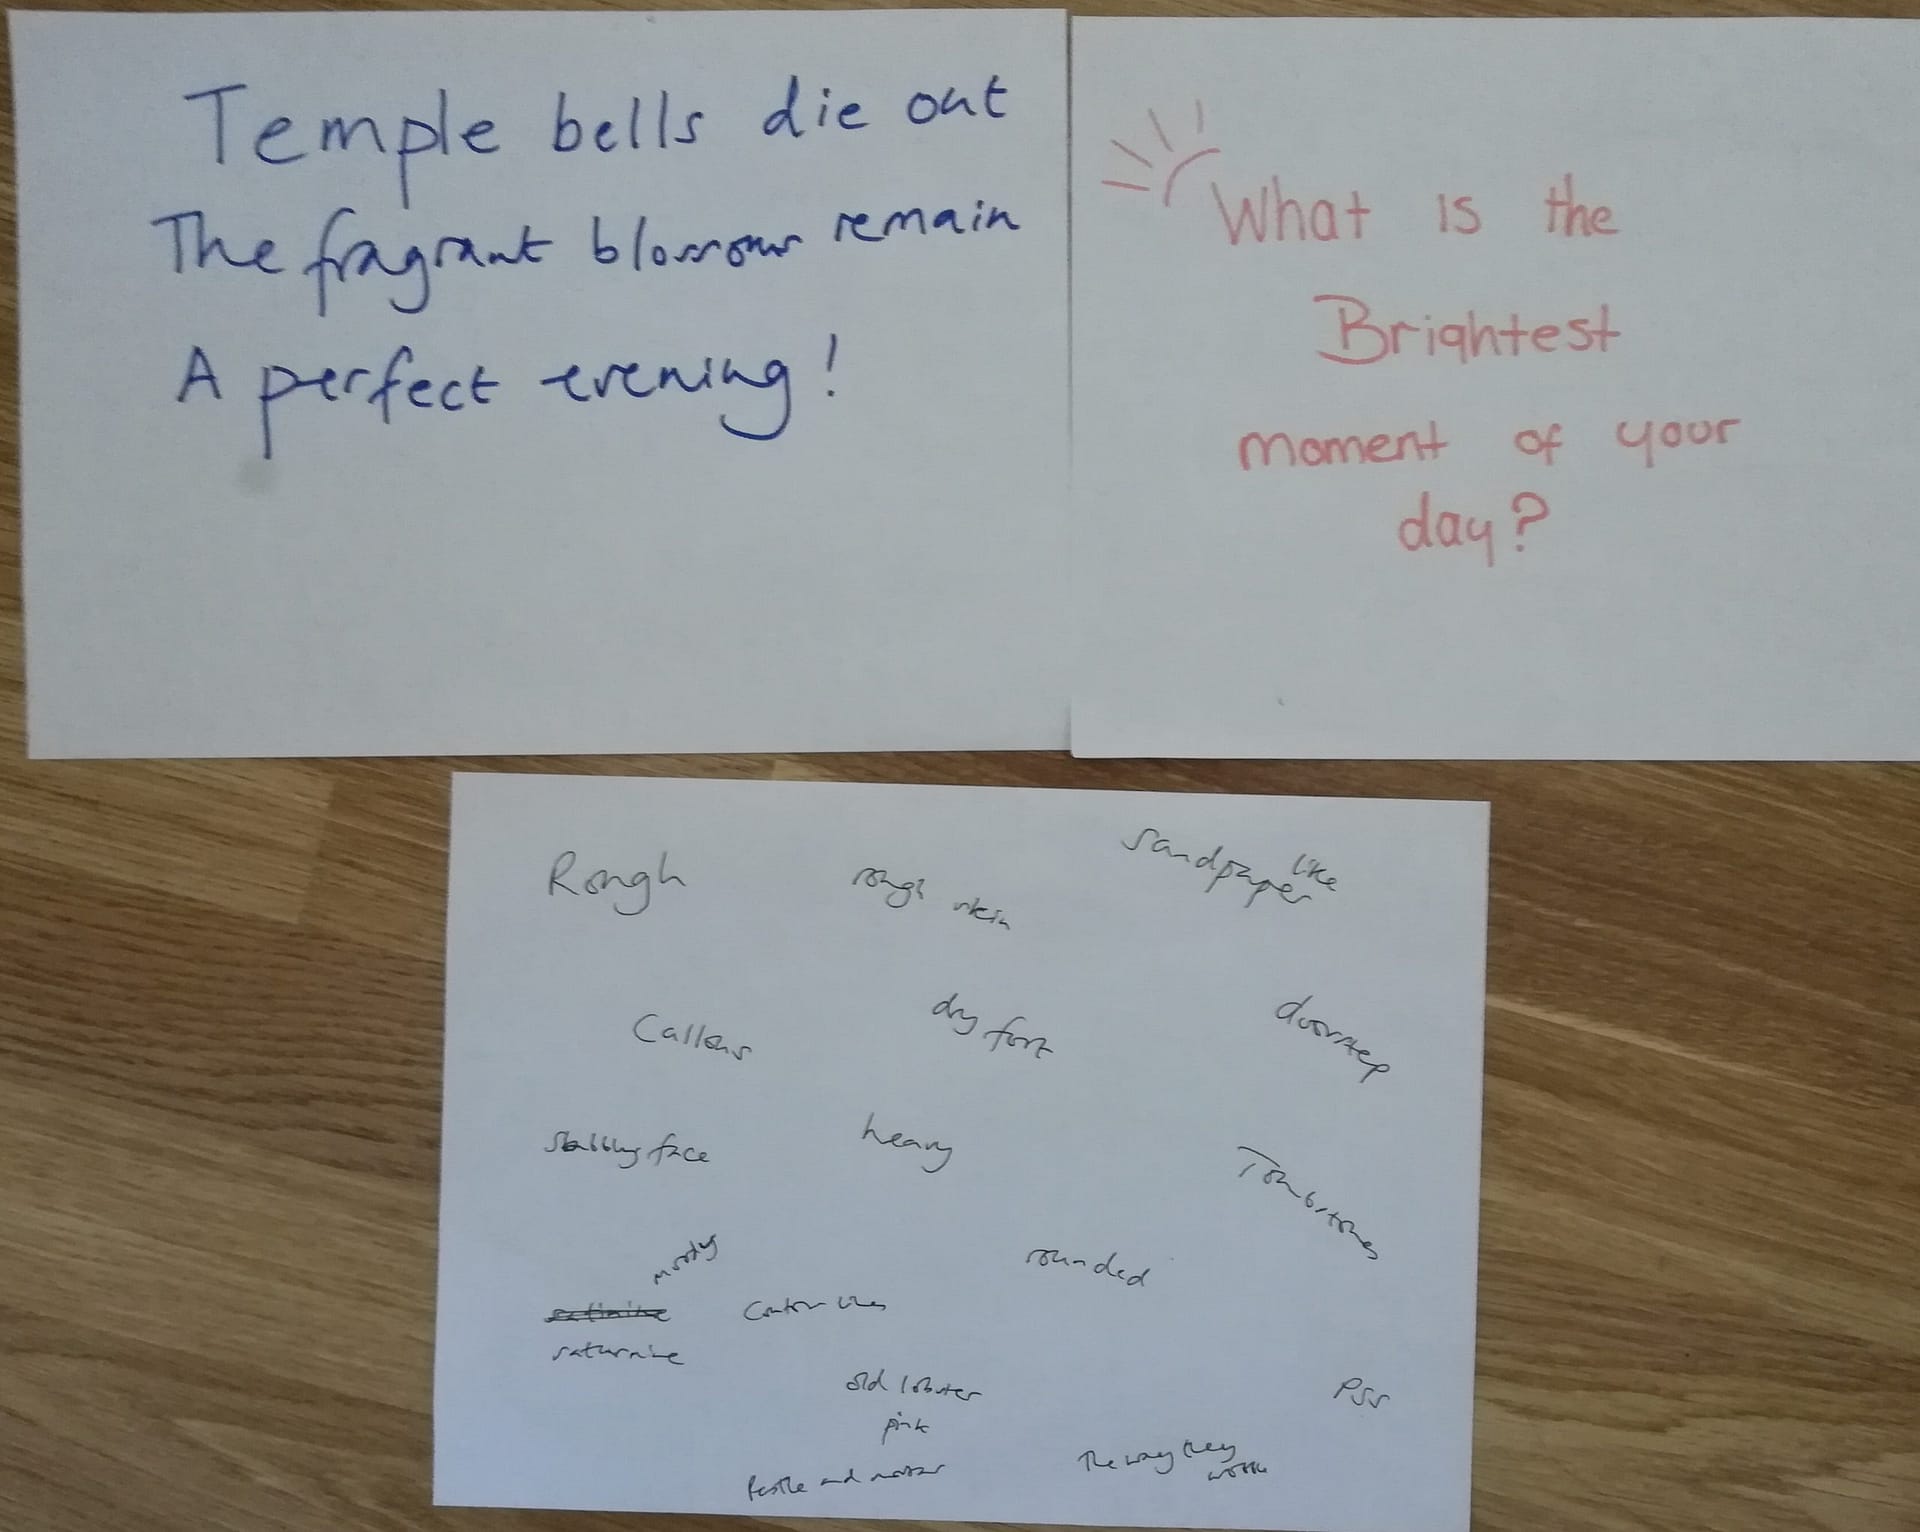 Temple bells die out
The fragrant blossoms remain
A perfect evening!
What is the
Brightest
moment of your
day?
Rough
rough skin
Sandpaper like
Callous
dry foot
doorstep
face
heavy
Tombstones
moody
rounded
saturnine
old lobster
pink
Pestle and mortar
The way they
work